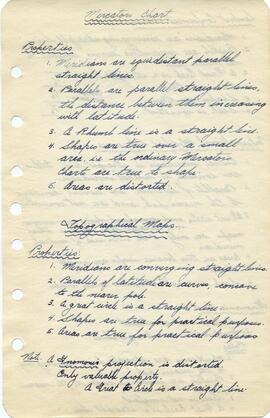 Mercators Chart
Properties
1. Meridians are equidistant parallel
straight lines.
2. Parallels are parallel straight lines,
the distance between them increasing
with latitude.
3. A Rhumb line is a straight line.
4. Shapes are true over a small
area. ie the ordinary Mercators
Chart are true to shape.
5. Areas are distorted.
Topographical Maps.
Properties:
1. Meridians are converging straight lines.
2. Parallels of latitude are curves, concave
to the nearer pole.
3. A great circle is a straight line.
4. Shapes are true for practical purposes.
5. Areas are true for practical purposes
Note: A Gnomonic projection is distorted.
Only valuable property.
A Great Circle is a straight line.